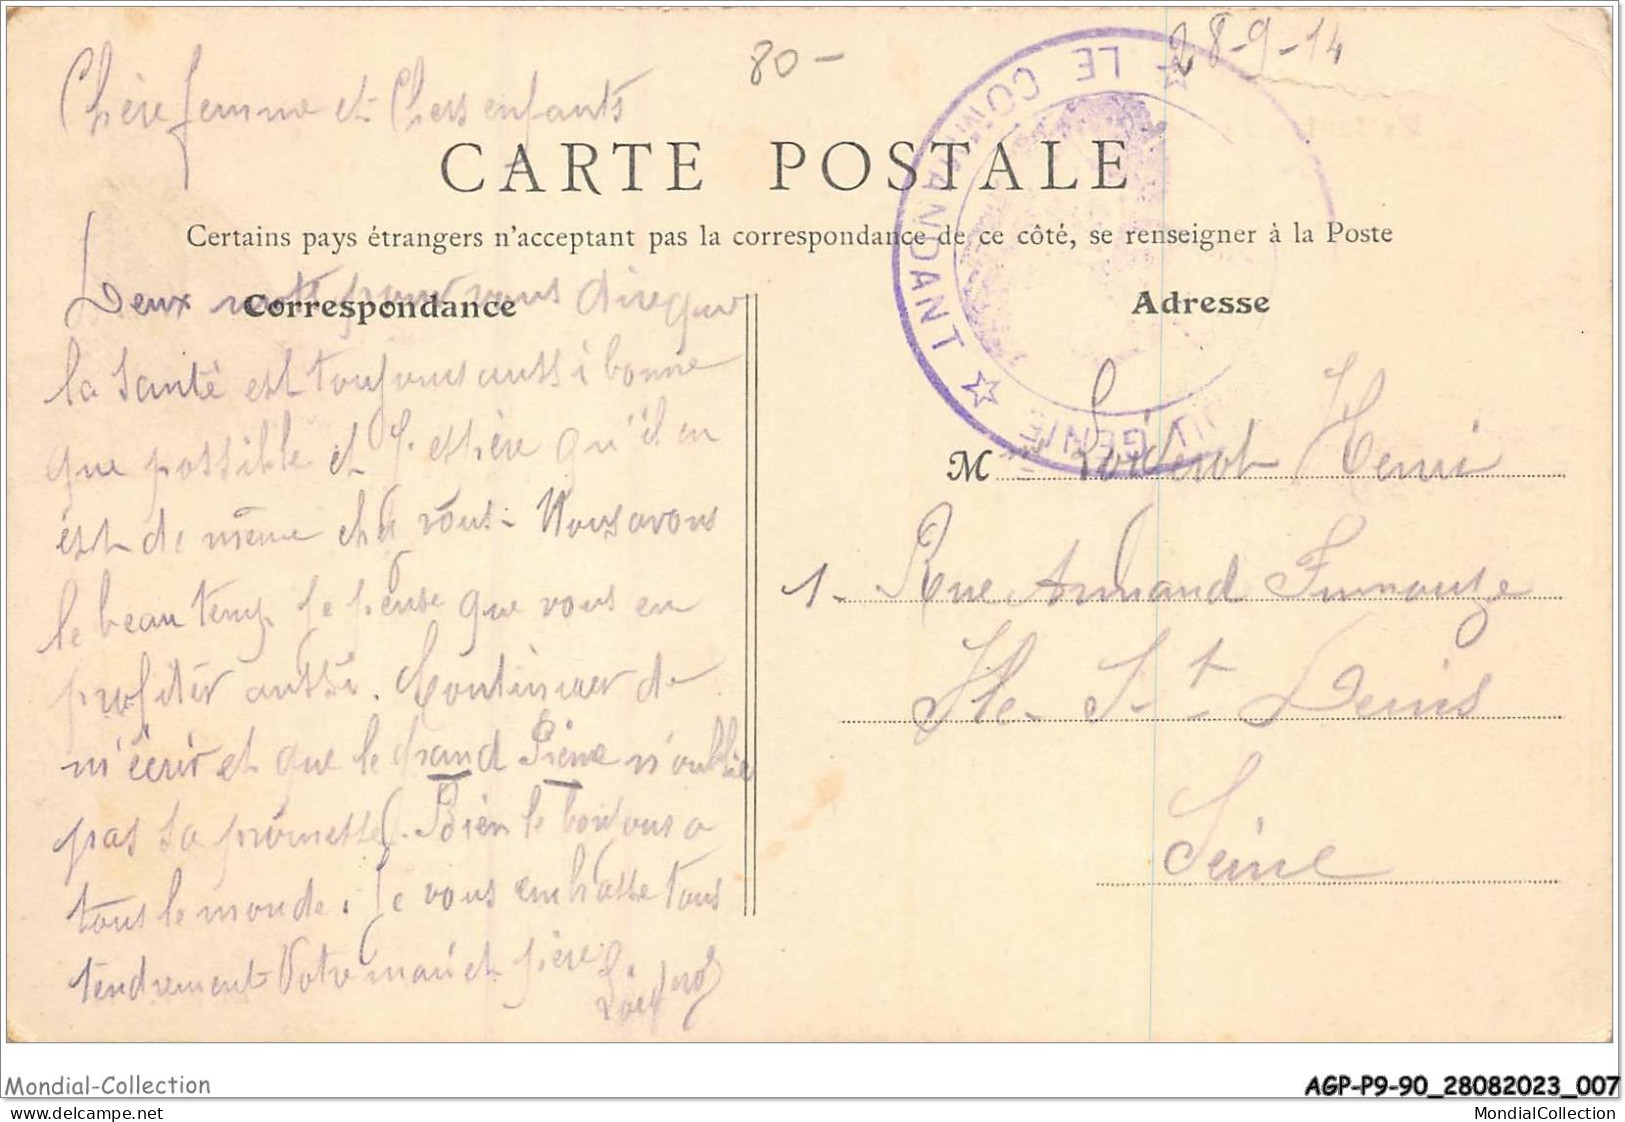 28-9-14
80-
Chère femme et Chers enfants
CARTE POSTALE
Certains pays étrangers n'acceptant pas la correspondance de ce côté, se renseigner à la Poste
★ LE COMMANDANT ★ DU GENIE
Correspondance
Adresse
Deux mots pour vous dire que
la santé est toujours aussi bonne
que possible et j'espère qu'il en
est de même chez vous. Nous avons
le beau temps je pense que vous en
profiter aussi. Continuer de
m'écrir et que le grand Pierre n'oublie
pas sa promesse. Bien le bonjour a
tous le monde. Je vous embrasse tous
tendrement Votre mari et père
M Henri
1- Rue Armand Fumouze
Ile St Denis
Seine
Mondial-Collection
AGP-P9-90_28082023_007
delcampe.net
MondialCollection